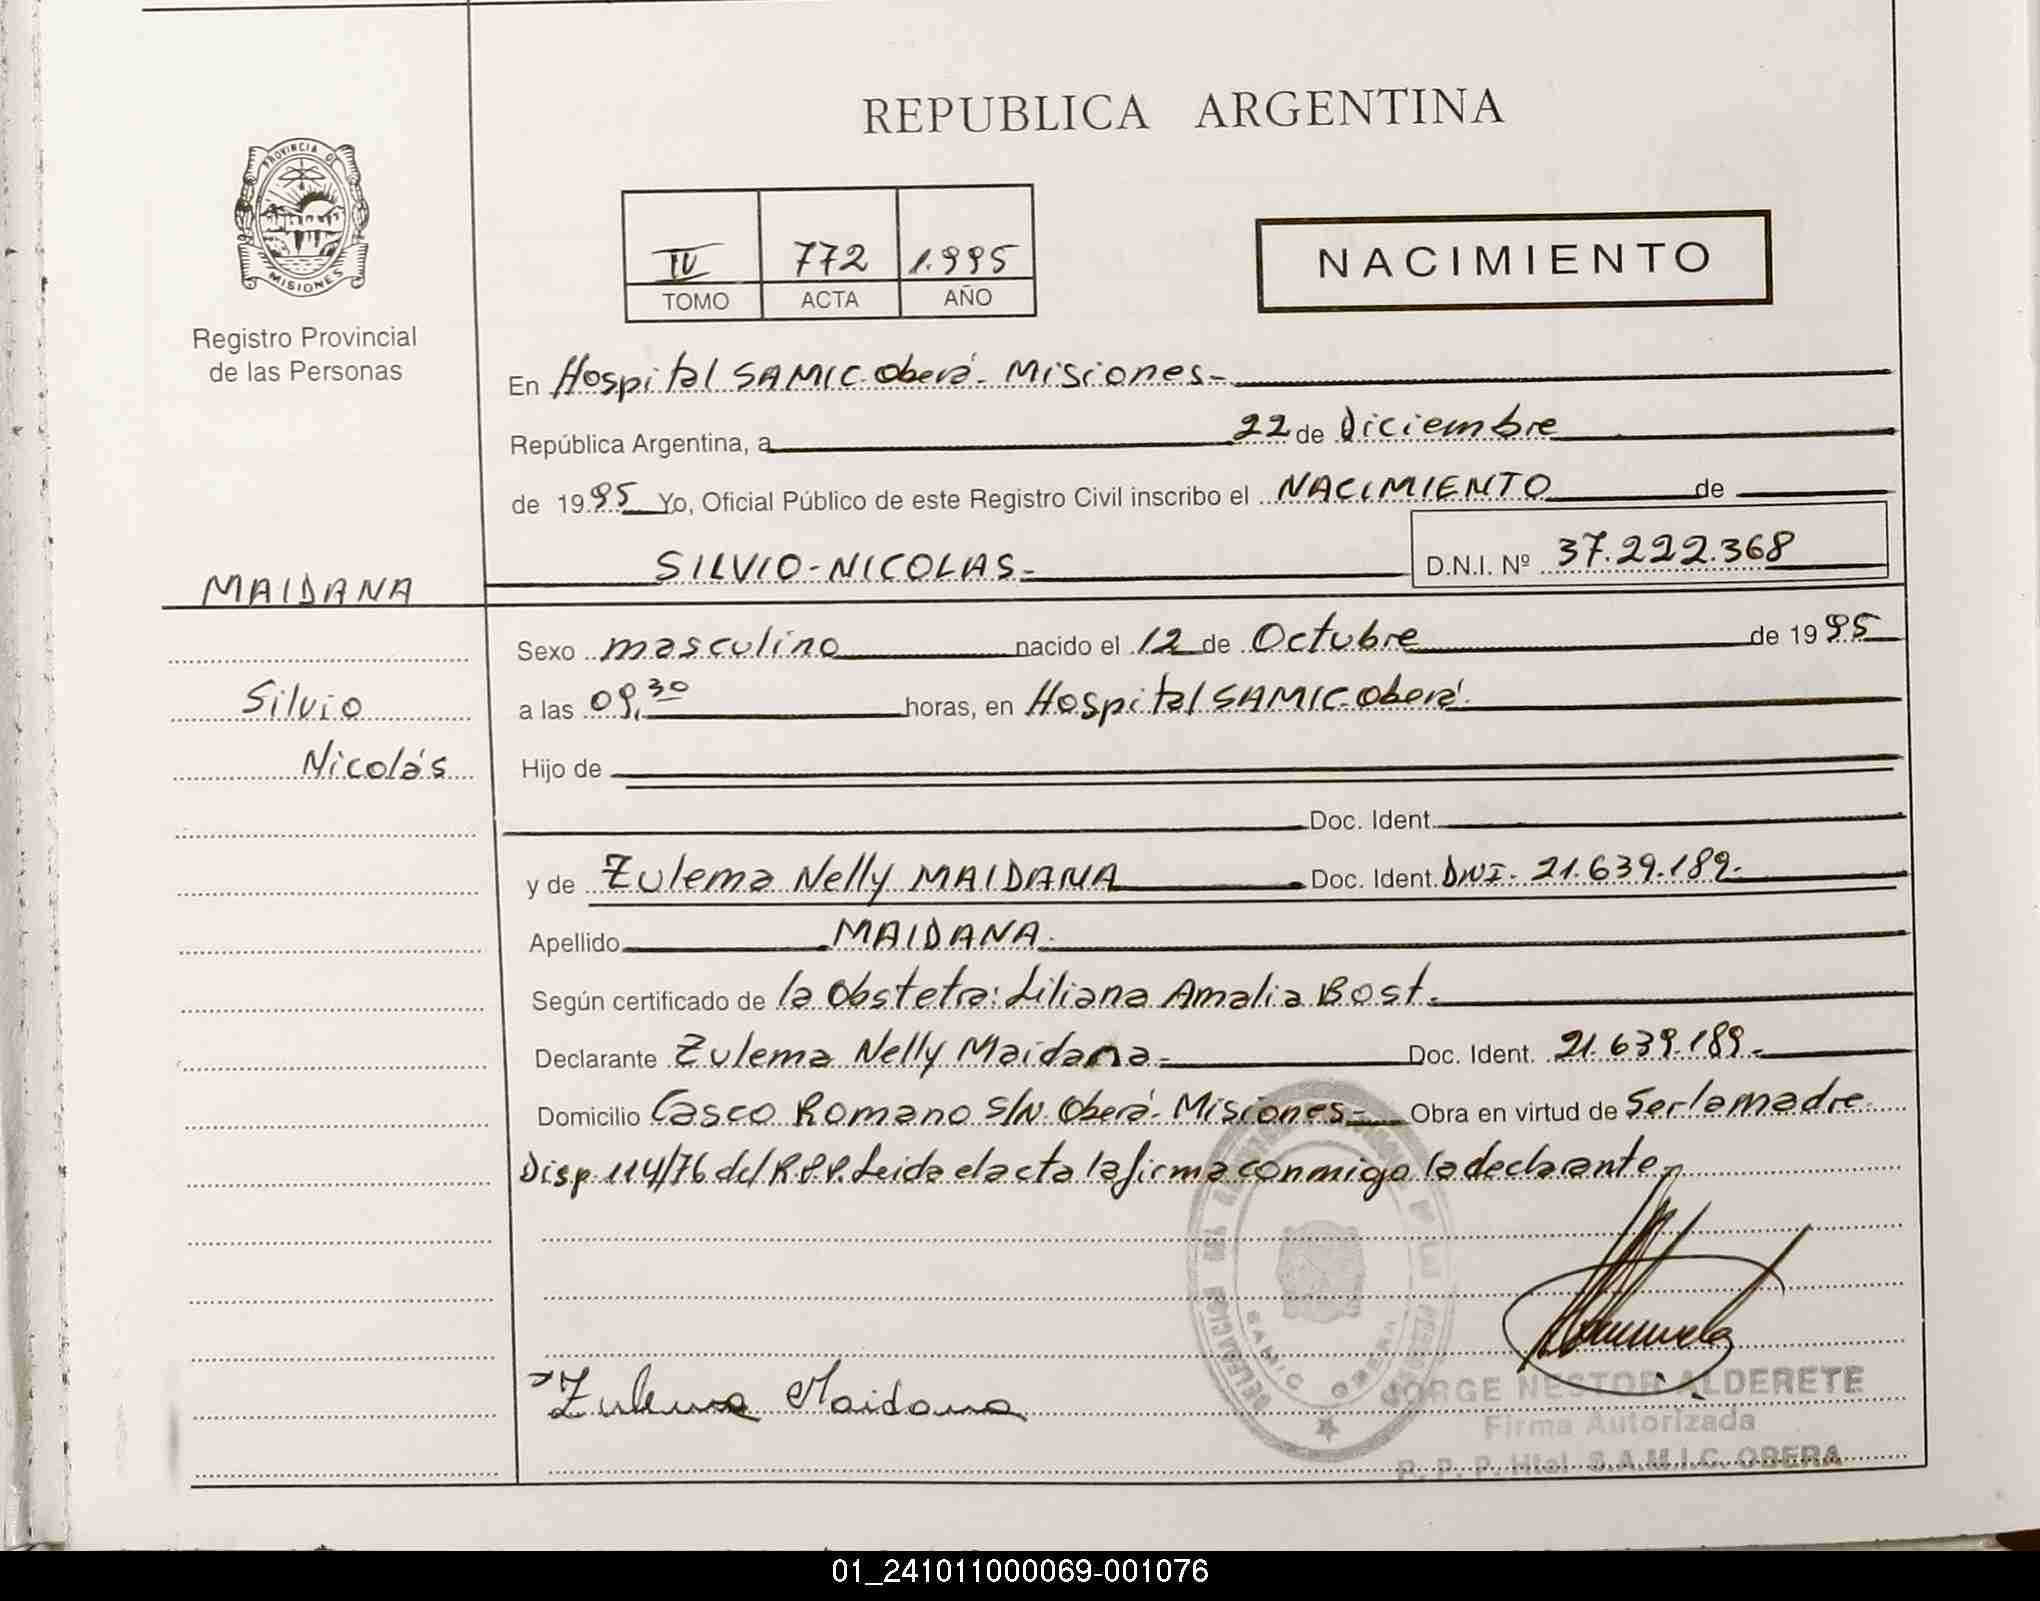 REPUBLICA ARGENTINA
PROVINCIA DE
MISIONES
Registro Provincial
de las Personas
IV 772 1.995
TOMO ACTA AÑO
NACIMIENTO
En Hospital SAMIC-Oberá-Misiones-
República Argentina, a 22 de Diciembre
de 1995 Yo, Oficial Público de este Registro Civil inscribo el NACIMIENTO de
SILVIO-NICOLAS- D.N.I. Nº 37.222.368
MAIDANA
Silvio
Nicolás
Sexo masculino nacido el 12 de Octubre de 1995
a las 09,30 horas, en Hospital SAMIC-Oberá-
Hijo de
Doc. Ident.
y de Zulema Nelly MAIDANA Doc. Ident. DNI- 21.639.189-
Apellido MAIDANA-
Según certificado de la Obstetra: Liliana Amalia Bost-
Declarante Zulema Nelly Maidana- Doc. Ident. 21.639.189-
Domicilio Casco Romano S/N. Oberá-Misiones- Obra en virtud de Ser la madre-
Disp. 114/76 del R.P.P. Leida el acta la firma conmigo la declarante-
Zulema Maidana
SAMIC OBERA
JORGE NESTOR ALDERETE
Firma Autorizada
R. P. P. Htal S.A.M.I.C. OBERA
01_241011000069-001076